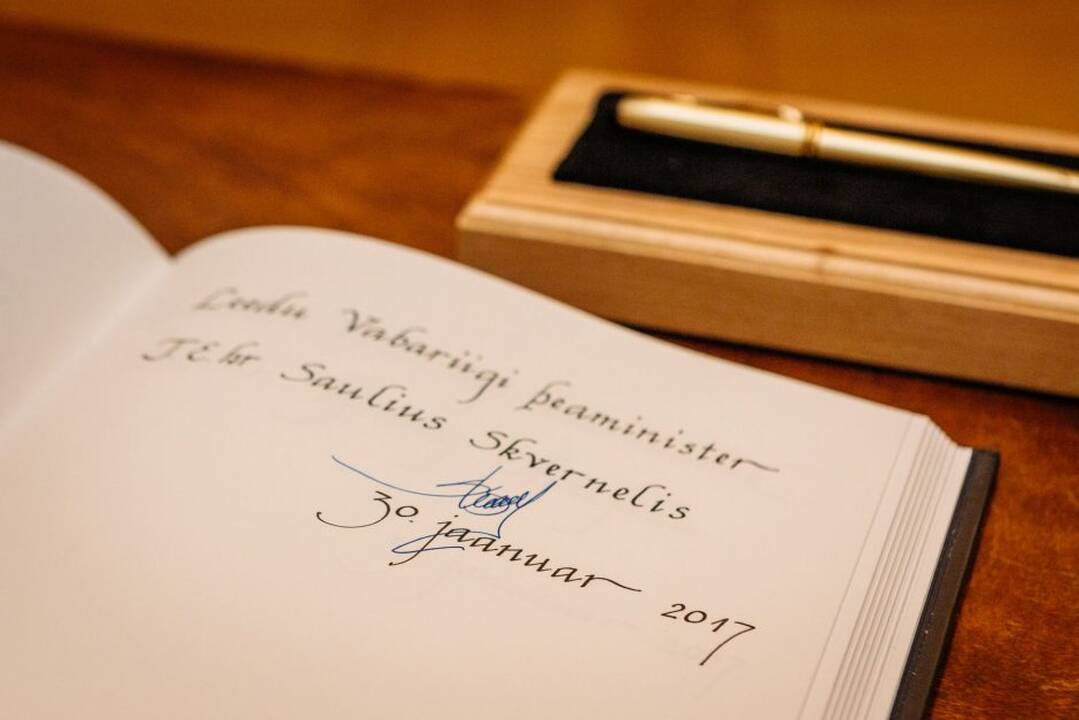 Leedu Vabariigi peaminister
T.E. hr Saulius Skvernelis
30. jaanuar 2017